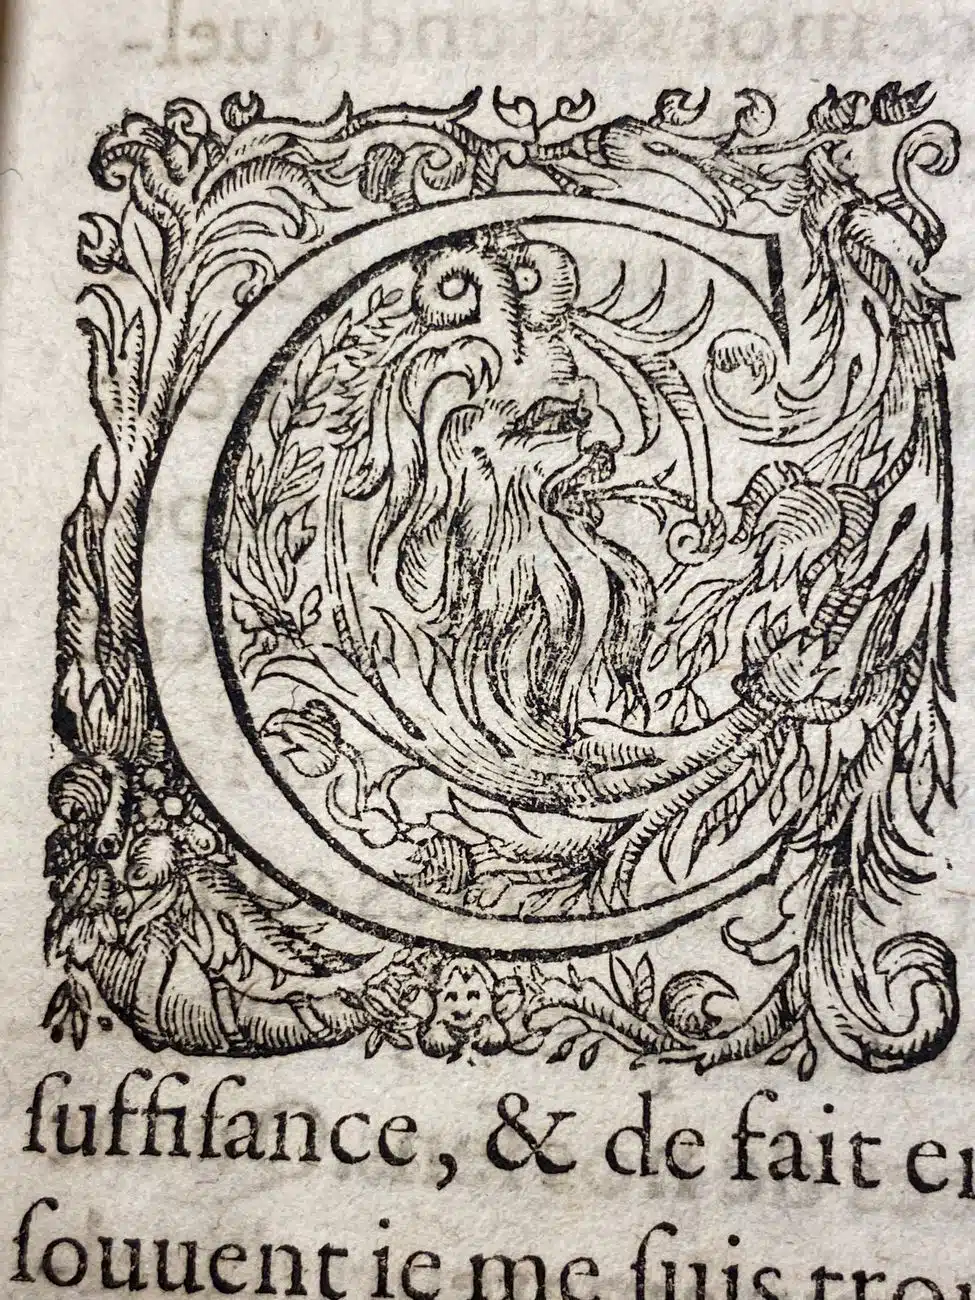 C
ſuffiſance, & de fait
ſouuent ie me ſuis